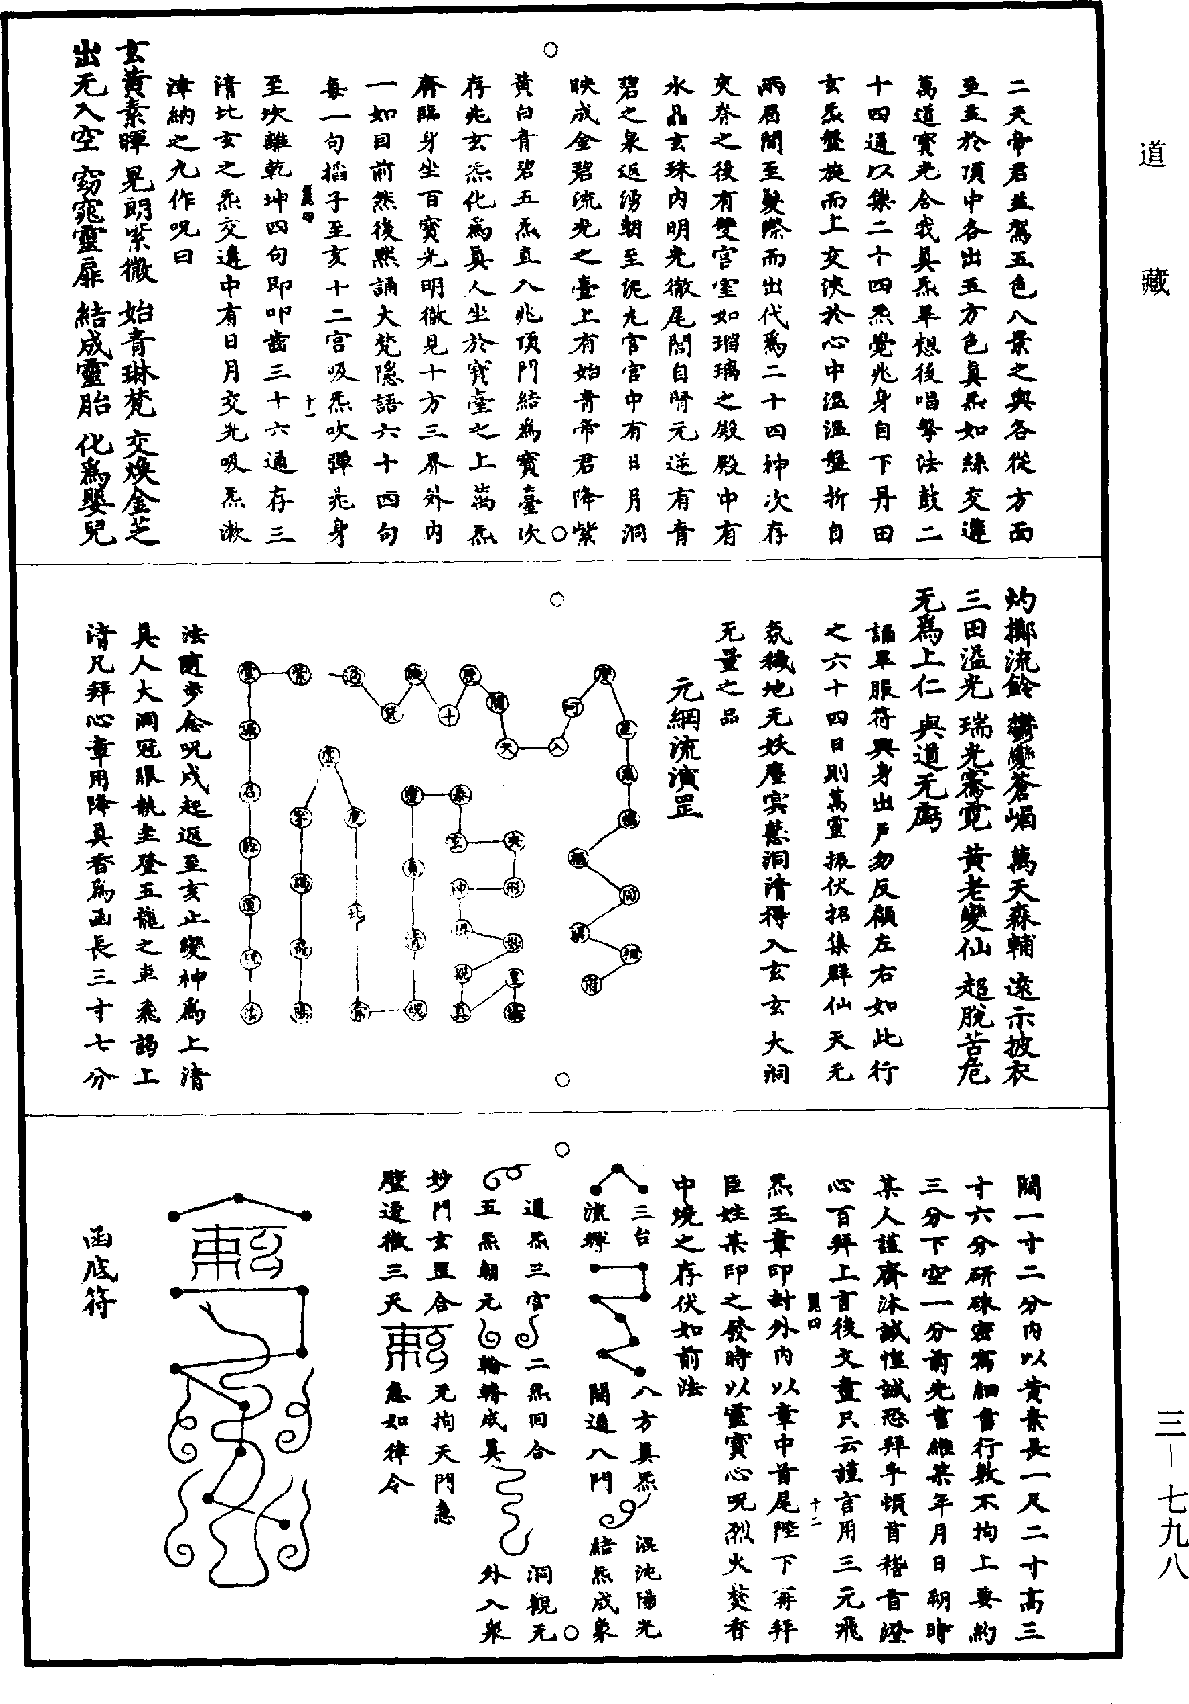 道藏
三－七九八
二天帝君並駕五色八景之輿各從方面
至並於頂中各出五方色真炁如絲交遶
萬道寶光合我真炁畢想後唱擊法鼓二
十四通以集二十四炁覺兆身自下丹田
玄炁盤旋而上交浹於心中溫溫盤折自
兩眉間至髮際而出代為二十四神次存
夾脊之後有雙宮室如瑠璃之殿殿中有
水晶玄珠內明光徹尾閭自腎元逆有青
碧之泉逆湧朝至泥丸宮宮中有日月洞
映成金碧流光之臺上有始青帝君降紫
黃白青碧五炁直入兆頂門結為寶臺次
存兆玄炁化為真人坐於寶臺之上萬炁
齊臨身坐百寶光明徹見十方三界外內
一如目前然後默誦大梵隱語六十四句
每一句掐子至亥十二宮吸炁吹彈兆身
至坎離乾坤四句即叩齒三十六通存三
清比玄之炁交遶中有日月交光吸炁漱
津納之九作呪曰
玄黃素暉 晃朗紫微 始青琳梵 交煥金芝
出无入空 窈窕靈扉 結成靈胎 化為嬰兒
灼擲流鈴 鬱變蒼嵋 萬天森輔 遠示披衣
三田溢光 瑞光騫霓 黃老變仙 超脫苦危
无為上仁 與道无虧
誦畢服符興身出戶勿反顧左右如此行
之六十四日則萬靈振伏招集群仙天元
氛穢地无妖塵冥慧洞清得入玄玄大洞
无量之品
元綱流演罡
法隨步念呪成起返至亥止變神為上清
真人大洞冠服執圭登五龍之車飛謁上
清凡拜心章用降真香為函長三寸七分
闊一寸二分內以黃素長一尺二寸高三
寸六分研硃密寫細書行數不拘上要約
三分下空一分前先書維某年月日朝時
某人謹齋沐誠惶誠恐拜手頓首稽首澄
心百拜上言後文盡只云謹言用三元飛
炁玉章印封外內以章中首尾陛下再拜
臣姓某印之發時以靈寶心呪烈火焚香
中燒之存伏如前法
三台 八方真炁 混沌陽光
流輝 開通八門 結炁成象
道炁三官 二炁回合 洞觀元
五炁朝元 輪轉成真 外入眾
妙門玄罡合 无拘天門急
壁遶徹三天 急如律令
函底符